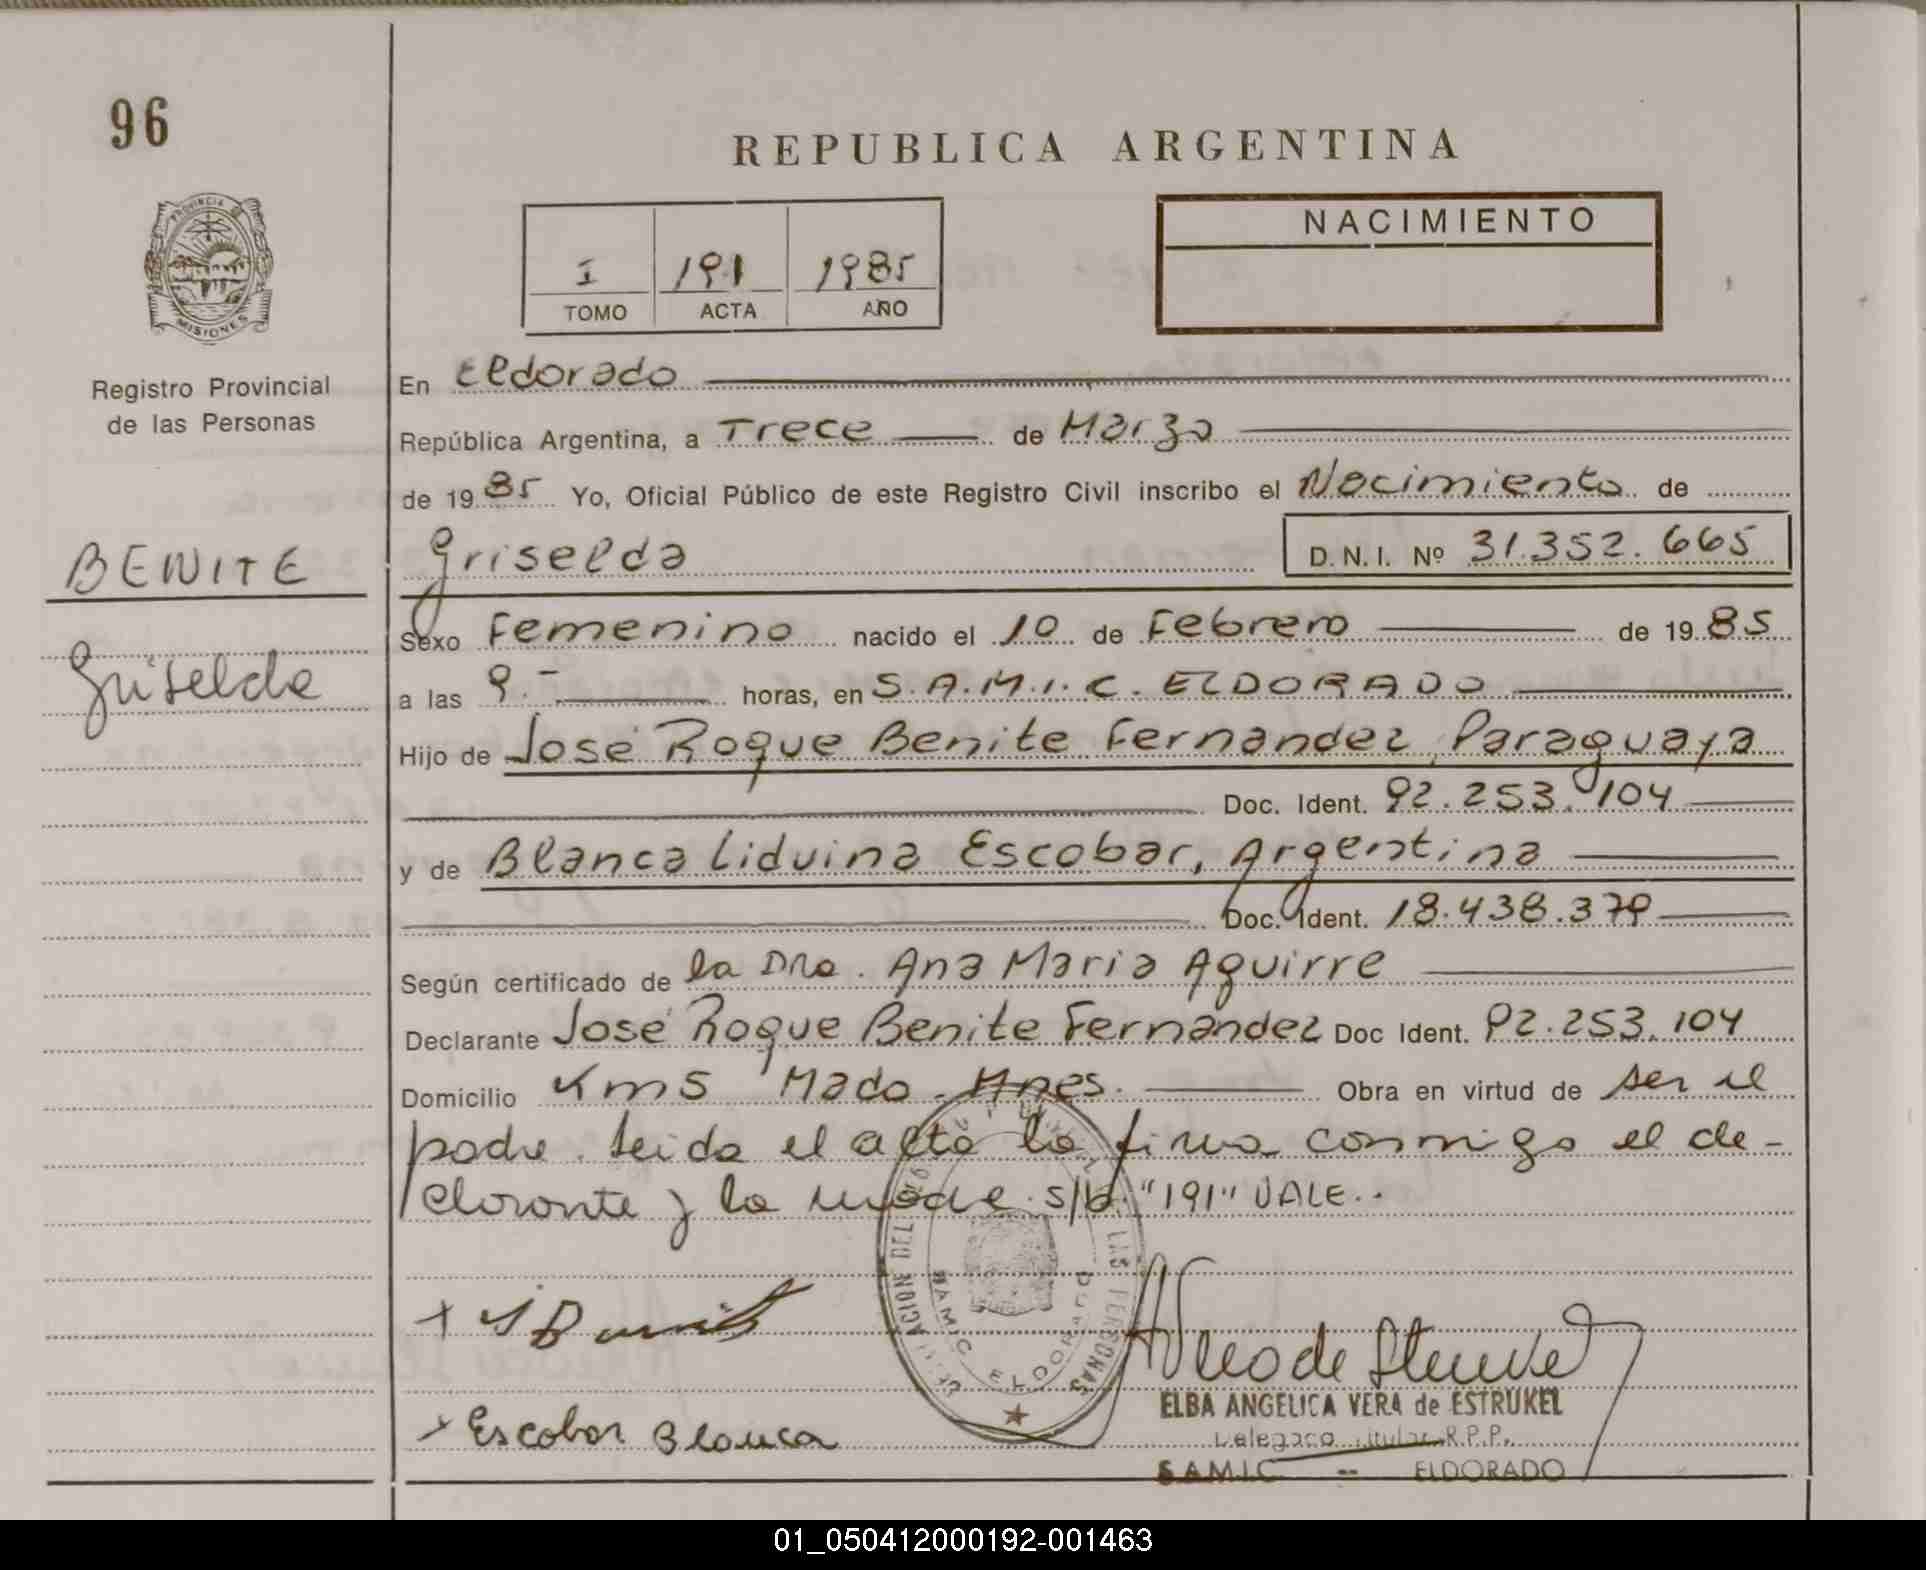 96
REPUBLICA ARGENTINA
PROVINCIA
MISIONES
Registro Provincial
de las Personas
I 191 1985
TOMO ACTA AÑO
NACIMIENTO
En Eldorado
República Argentina, a Trece de Marzo
de 1985 Yo, Oficial Público de este Registro Civil inscribo el Nacimiento de
BENITE
Griselda
Griselda D.N.I. Nº 31.352.665
Sexo Femenino nacido el 10 de Febrero de 1985
a las 9.- horas, en S.A.M.I.C. ELDORADO
Hijo de José Roque Benite Fernandez, Paraguaya
Doc. Ident. 92.253.104
y de Blanca Liduina Escobar, Argentina
Doc. Ident. 18.438.379
Según certificado de la Dra. Ana Maria Aguirre
Declarante José Roque Benite Fernandez Doc Ident. 92.253.104
Domicilio Km5 Mado. Mnes. Obra en virtud de ser el
padre. Leida el acta la firma conmigo el de-
clarante y la madre. s/b. "191" VALE..
LAS PERSONAS
SAMIC ELDORADO
+ Escobar Blanca
ELBA ANGELICA VERA de ESTRUKEL
Delegada Titular R.P.P.
S.A.M.I.C -- ELDORADO
01_050412000192-001463